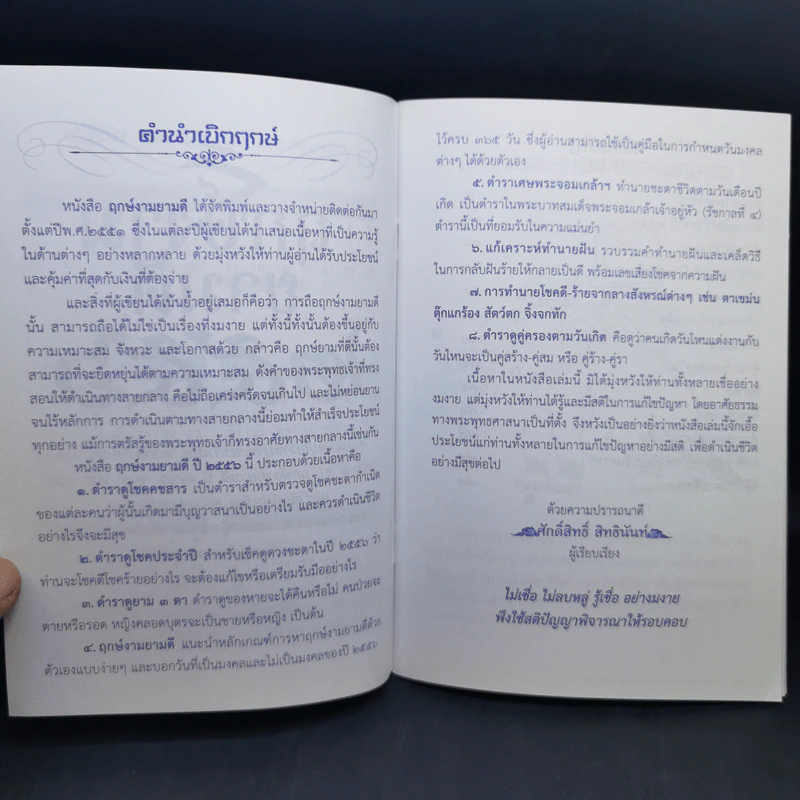 คำนำเบิกฤกษ์
หนังสือ ฤกษ์งามยามดี ได้จัดพิมพ์และวางจำหน่ายติดต่อกันมา
ตั้งแต่ปีพ.ศ.๒๕๕๑ ซึ่งในแต่ละปีผู้เขียนได้นำเสนอเนื้อหาที่เป็นความรู้
ในด้านต่างๆ อย่างหลากหลาย ด้วยมุ่งหวังให้ท่านผู้อ่านได้รับประโยชน์
และคุ้มค่าที่สุดกับเงินที่ต้องจ่าย
และสิ่งที่ผู้เขียนได้เน้นย้ำอยู่เสมอก็คือว่า การถือฤกษ์งามยามดี
นั้น สามารถถือได้ไม่ใช่เป็นเรื่องที่งมงาย แต่ทั้งนี้ทั้งนั้นต้องขึ้นอยู่กับ
ความเหมาะสม จังหวะ และโอกาสด้วย กล่าวคือ ฤกษ์ยามที่ดีนั้นต้อง
สามารถที่จะยืดหยุ่นได้ตามความเหมาะสม ดังคำของพระพุทธเจ้าที่ทรง
สอนให้ดำเนินทางสายกลาง คือไม่ถือเคร่งครัดจนเกินไป และไม่หย่อนยาน
จนไร้หลักการ การดำเนินตามทางสายกลางนี้ย่อมทำให้สำเร็จประโยชน์
ทุกอย่าง แม้การตรัสรู้ของพระพุทธเจ้าก็ทรงอาศัยทางสายกลางนี้เช่นกัน
หนังสือ ฤกษ์งามยามดี ปี ๒๕๕๖ นี้ ประกอบด้วยเนื้อหาคือ
๑. ตำราดูโชคคชสาร เป็นตำราสำหรับตรวจดูโชคชะตากำเนิด
ของแต่ละคนว่าผู้นั้นเกิดมามีบุญวาสนาเป็นอย่างไร และควรดำเนินชีวิต
อย่างไรจึงจะมีสุข
๒. ตำราดูโชคประจำปี สำหรับเช็คดูดวงชะตาในปี ๒๕๕๖ ว่า
ท่านจะโชคดีโชคร้ายอย่างไร จะต้องแก้ไขหรือเตรียมรับมืออย่างไร
๓. ตำราดูยาม ๓ ตา ตำราดูของหายจะได้คืนหรือไม่ คนป่วยจะ
ตายหรือรอด หญิงคลอดบุตรจะเป็นชายหรือหญิง เป็นต้น
๔. ฤกษ์งามยามดี แนะนำหลักเกณฑ์การหาฤกษ์งามยามดีด้วย
ตัวเองแบบง่ายๆ และบอกวันที่เป็นมงคลและไม่เป็นมงคลของปี ๒๕๕๖
ไว้ครบ ๓๖๕ วัน ซึ่งผู้อ่านสามารถใช้เป็นคู่มือในการกำหนดวันมงคล
ต่างๆ ได้ด้วยตัวเอง
๕. ตำราเศษพระจอมเกล้าฯ ทำนายชะตาชีวิตตามวันเดือนปี
เกิด เป็นตำราในพระบาทสมเด็จพระจอมเกล้าเจ้าอยู่หัว (รัชกาลที่ ๔)
ตำรานี้เป็นที่ยอมรับในความแม่นยำ
๖. แก้เคราะห์ทำนายฝัน รวบรวมคำทำนายฝันและเคล็ดวิธี
ในการกลับฝันร้ายให้กลายเป็นดี พร้อมเลขเสี่ยงโชคจากความฝัน
๗. การทำนายโชคดี-ร้ายจากลางสังหรณ์ต่างๆ เช่น ตาเขม่น
ตุ๊กแกร้อง สัตว์ตก จิ้งจกทัก
๘. ตำราดูคู่ครองตามวันเกิด คือดูว่าคนเกิดวันไหนแต่งงานกับ
วันไหนจะเป็นคู่สร้าง-คู่สม หรือ คู่ร้าง-คู่รา
เนื้อหาในหนังสือเล่มนี้ มิได้มุ่งหวังให้ท่านทั้งหลายเชื่ออย่าง
งมงาย แต่มุ่งหวังให้ท่านได้รู้และมีสติในการแก้ไขปัญหา โดยอาศัยธรรม
ทางพระพุทธศาสนาเป็นที่ตั้ง จึงหวังเป็นอย่างยิ่งว่าหนังสือเล่มนี้จักเอื้อ
ประโยชน์แก่ท่านทั้งหลายในการแก้ไขปัญหาอย่างมีสติ เพื่อดำเนินชีวิต
อย่างมีสุขต่อไป
ด้วยความปรารถนาดี
ศักดิ์สิทธิ์ สิทธินันท์
ผู้เรียบเรียง
ไม่เชื่อ ไม่ลบหลู่ รู้เชื่อ อย่างมงาย
พึงใช้สติปัญญาพิจารณาให้รอบคอบ